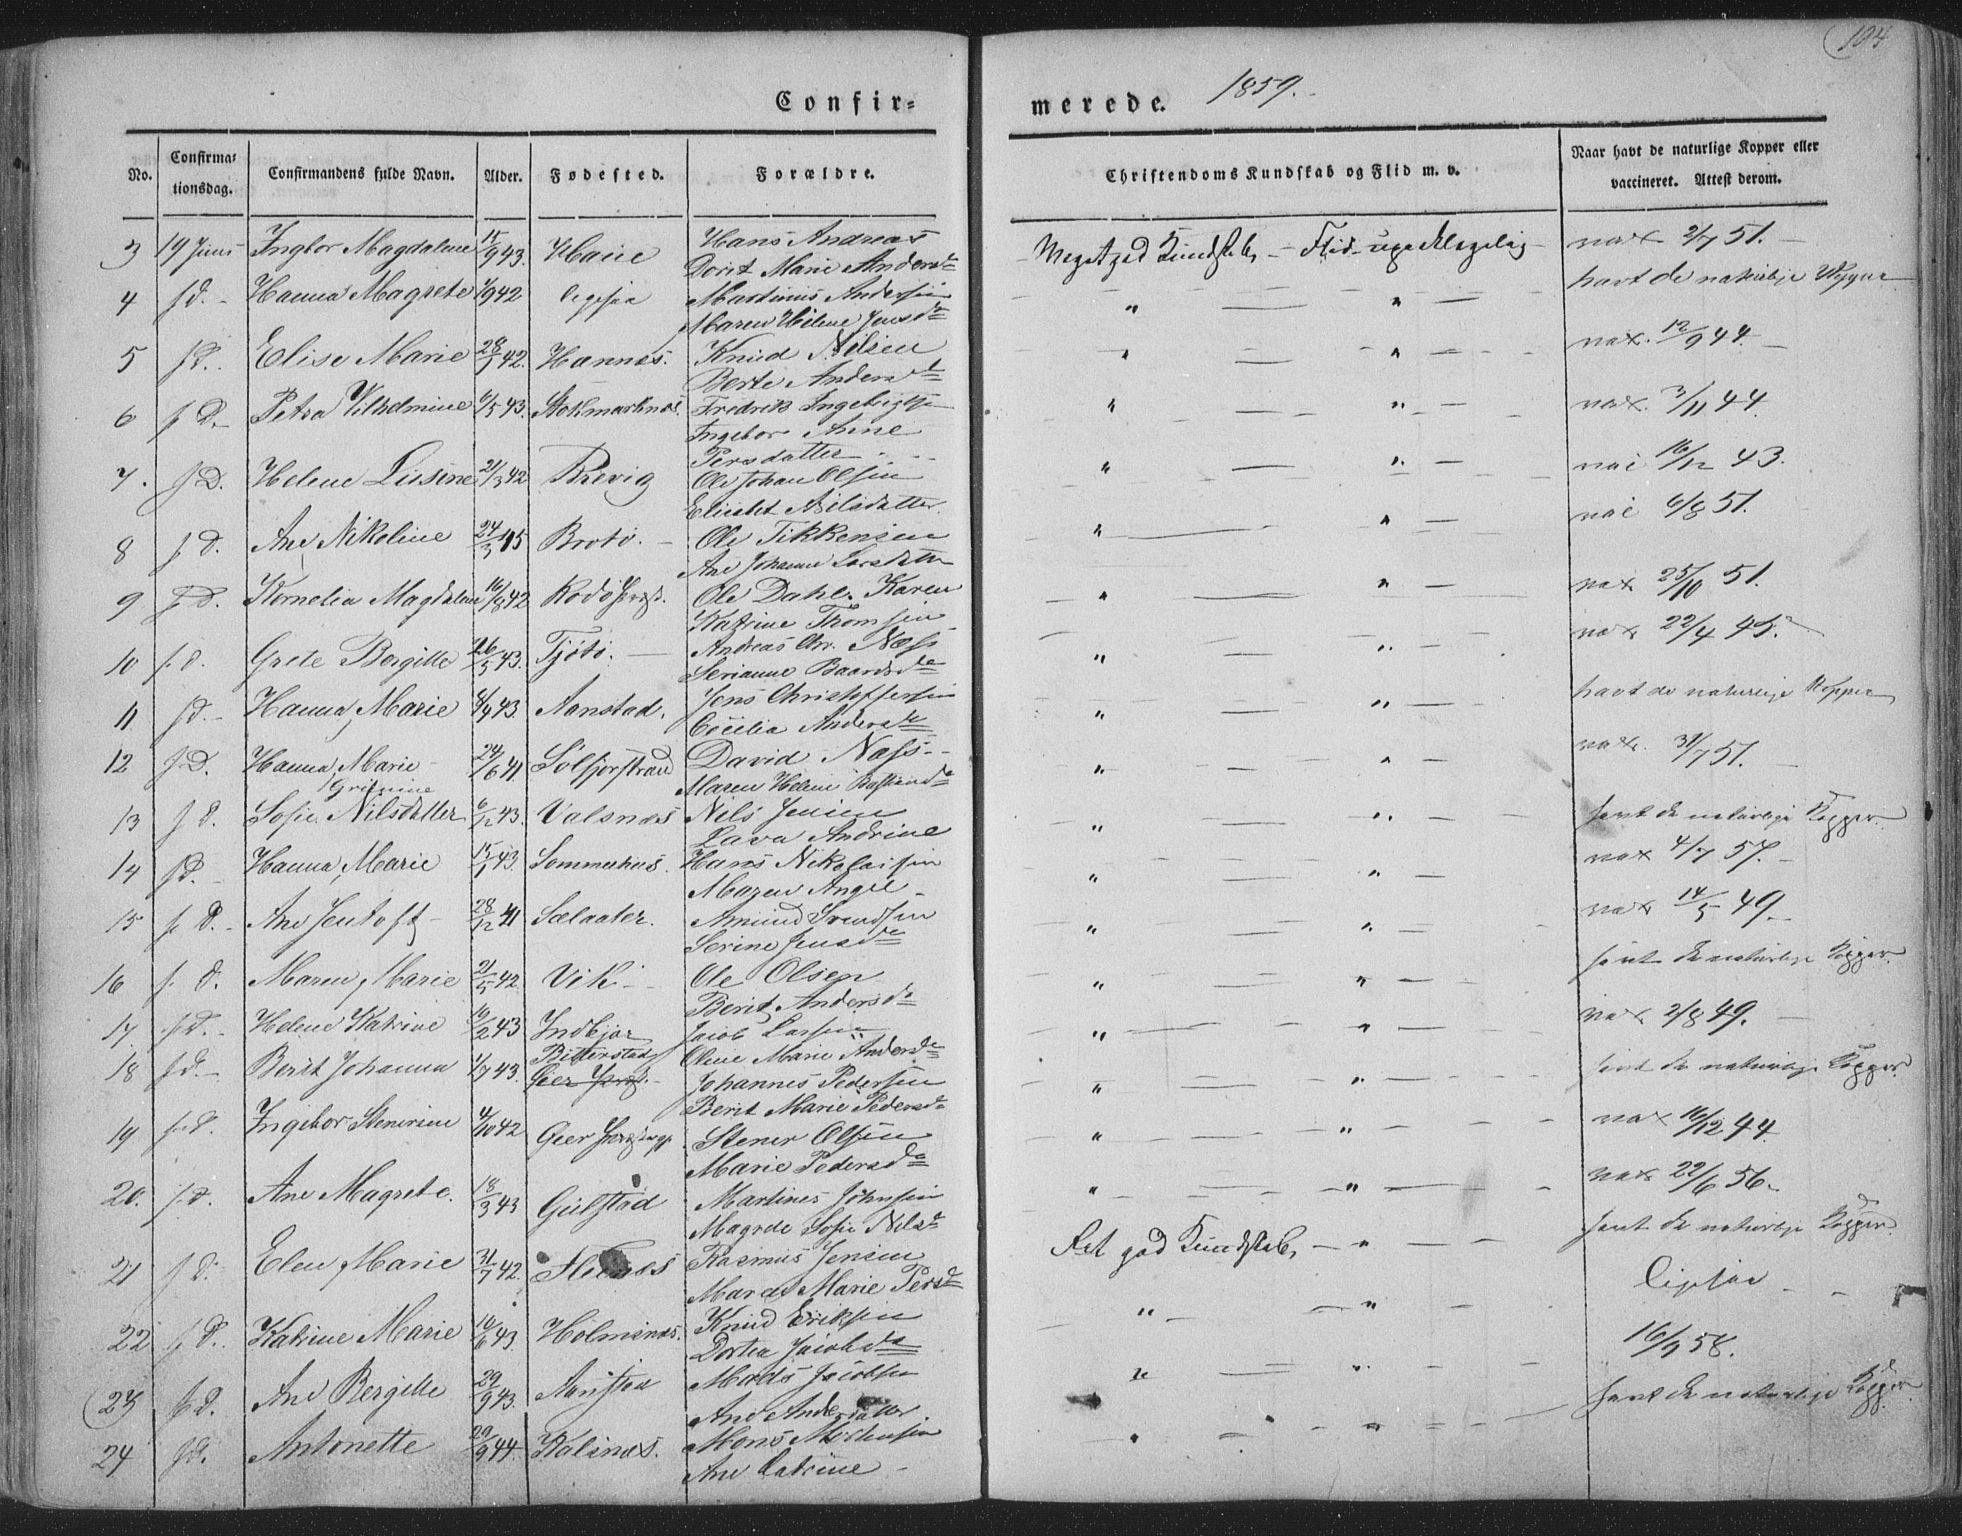 104
Confir-
merede. 1859.
No.
Confirma-
tionsdag.
Confirmandens fulde Navn.
Alder.
Fødested.
Forældre.
Christendoms Kundskab og Flid m. v.
Naar havt de naturlige Kopper eller
vaccineret. Attest derom.
3 19 Juni Ingbor Magdalene 15/9 43. Hans Andreas
Dorit Marie Andersdr
Meget god Kundskab, – Flid – upaaklagelig – vax 2/7 51. –
4 f d. Hanna Magrete 1/9 42 Martinus Andersen
Maren Helene Jensdr
" — " — havt de naturlige
5 f d. Elise Marie 28/1 42. Hannes. Knud Nilsen
Berte Andersdr
" — " — vax. 12/9 44
6 f D. Petra Vilhelmine 6/5 43. Stokmarknes. Fredrik Ingebrigtse
Ingebor Anne
Persdatter
" — " — vax. 3/11 44.
7. f D. Helene Lusine 21/3 42 Brevig Ole Johan Olsen
Elisabet Nilsdatter.
" — " — vac 16/12 43.
8 f d. Ane Nikoline 24/3 45 Brotø. – Ole Tikkensen
Ane Johanne Larsdatter
" — " — vac 6/8 51.
9 f D. Kornelia Magdalene 16/8 42 Rødø Præstg. Ole Dahl. Karen
Katrine Thomsen
" — " — vax 25/10 51.
10 f. d. Grete Bergitte 26/5 43. Tjøtø. — Andreas Chr. Næss
Serianne Baardsdr
" — " — vax 22/4 45.
11 f d. Hanna Marie 4/9 43. Aanstad. Jens Christoffersen
Cecilia Andersdr
" — " — havt de naturlige Kopper
12 f D. Hanna Marie 24/6 41 Sølfjorstrand David Næss
Maren Helene
" — " — vax. 31/7 51. –
13 f d. Sofie Nilsdatter 6/12 43. Valsnæs Nils Jensen
Lava Andrine
" — " — havt de naturlige Kopper.
14 f d. – Hanna Marie 15/1 43. Sommerhus. Hans Nikolaisen
Maren Angel
" — " — vax 4/7 57. –
15 f. D. – Ane Jentoft 28/12 41 Sælaater. Amund Svendsen
Serine Jensdr
" — " — vax 14/5 49.
16 f. d. Maren Marie 21/5 42. Vik – Ole Olsen
Berit Andersdr
" — " — havt de naturlige Kopper.
17. f D. – Helene Katrine 10/2 43 Indbjør Jacob Larsen
Oline Marie Andersdr
" — " — vax 2/8 49. –
18 f d. – Berit Johanna 1/7 43. Bitterstad Johannes Pedersen
Berit Marie Pedersdr
" — " — havt de naturlige Kopper.
19 f. d. Ingebor Stenerine 4/10 42 Stener Olsen
Marie Pedersdr
" — " — vax 16/12 44.
20. f. d. Ane Magrete. 18/3 43 Gulstad Martines Johnsen
Magrde Sofie Nilsdr
" — " — vax 22/6 56.
21 f D. Elen Marie 31/7 42. Rasmus Jensen
Maret Marie Persdr
Ret god Kundskab, — " — havt de naturlige Kopper
22 f D. Katrine Marie 10/6 43 Holmsnes. Knud Eriksen
Dortea Jacobsdr
" — " — ligesaa
23 f D. Ane Bergitte 29/9 43. Aanstad Mads Jacobsen
Ane Andersdatter.
" — " — 16/9 58.
24 f d. Antonette 20/9 44. Kalsnæs. Mons Mortensen
Ane Catrine –
" — " — havt de naturlige Kopper